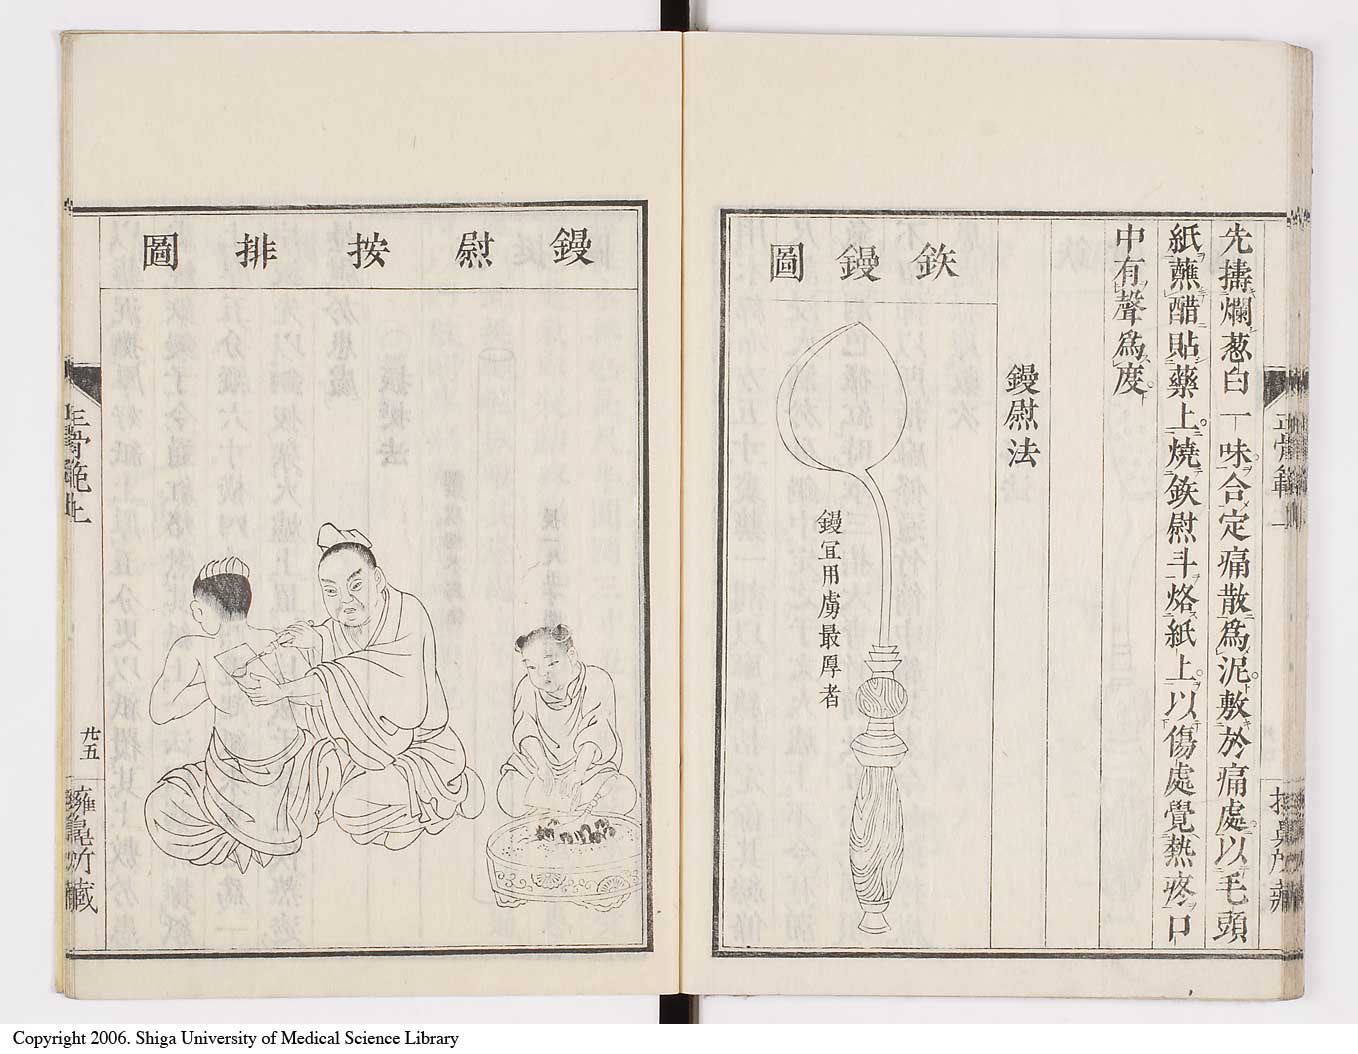 先擣爛葱白一味合定痛散爲泥敷於痛處以毛頭
紙蘸醋貼藥上燒鉄熨斗烙紙上以傷處覺熱疼口
中有聲爲度
鏝熨法
鉄鏝圖
鏝宜用虜最厚者
鏝熨按排圖
正骨範上
廿五
Copyright 2006. Shiga University of Medical Science Library